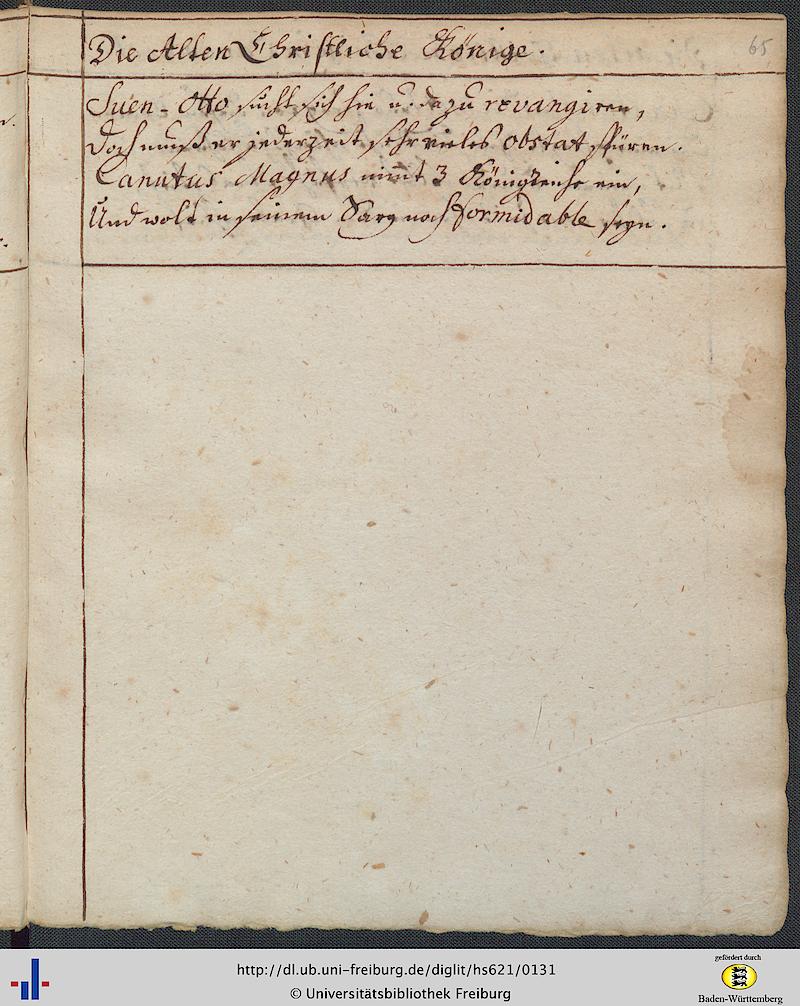 65
Die Alten Christliche Könige.
Suen-Otto sucht sich hie u. dazu revangiren,
Doch muß er jederzeit sehr vieles obstat spüren.
Canutus Magnus nim̄t 3 Königreiche ein,
Und wolt in seinem Sarg noch formidable seyn.
http://dl.ub.uni-freiburg.de/diglit/hs621/0131
© Universitätsbibliothek Freiburg
gefördert durch
Baden-Württemberg